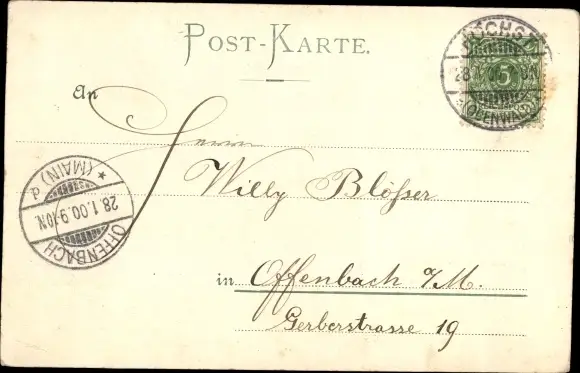 POST-KARTE.
An
Herrn
Willy Blößer
in Offenbach a/M.
Gerberstrasse 19
HÖCHST
28.1.00
(ODENWALD)
5
OFFENBACH
28.1.00.9-10N.
* (MAIN) d